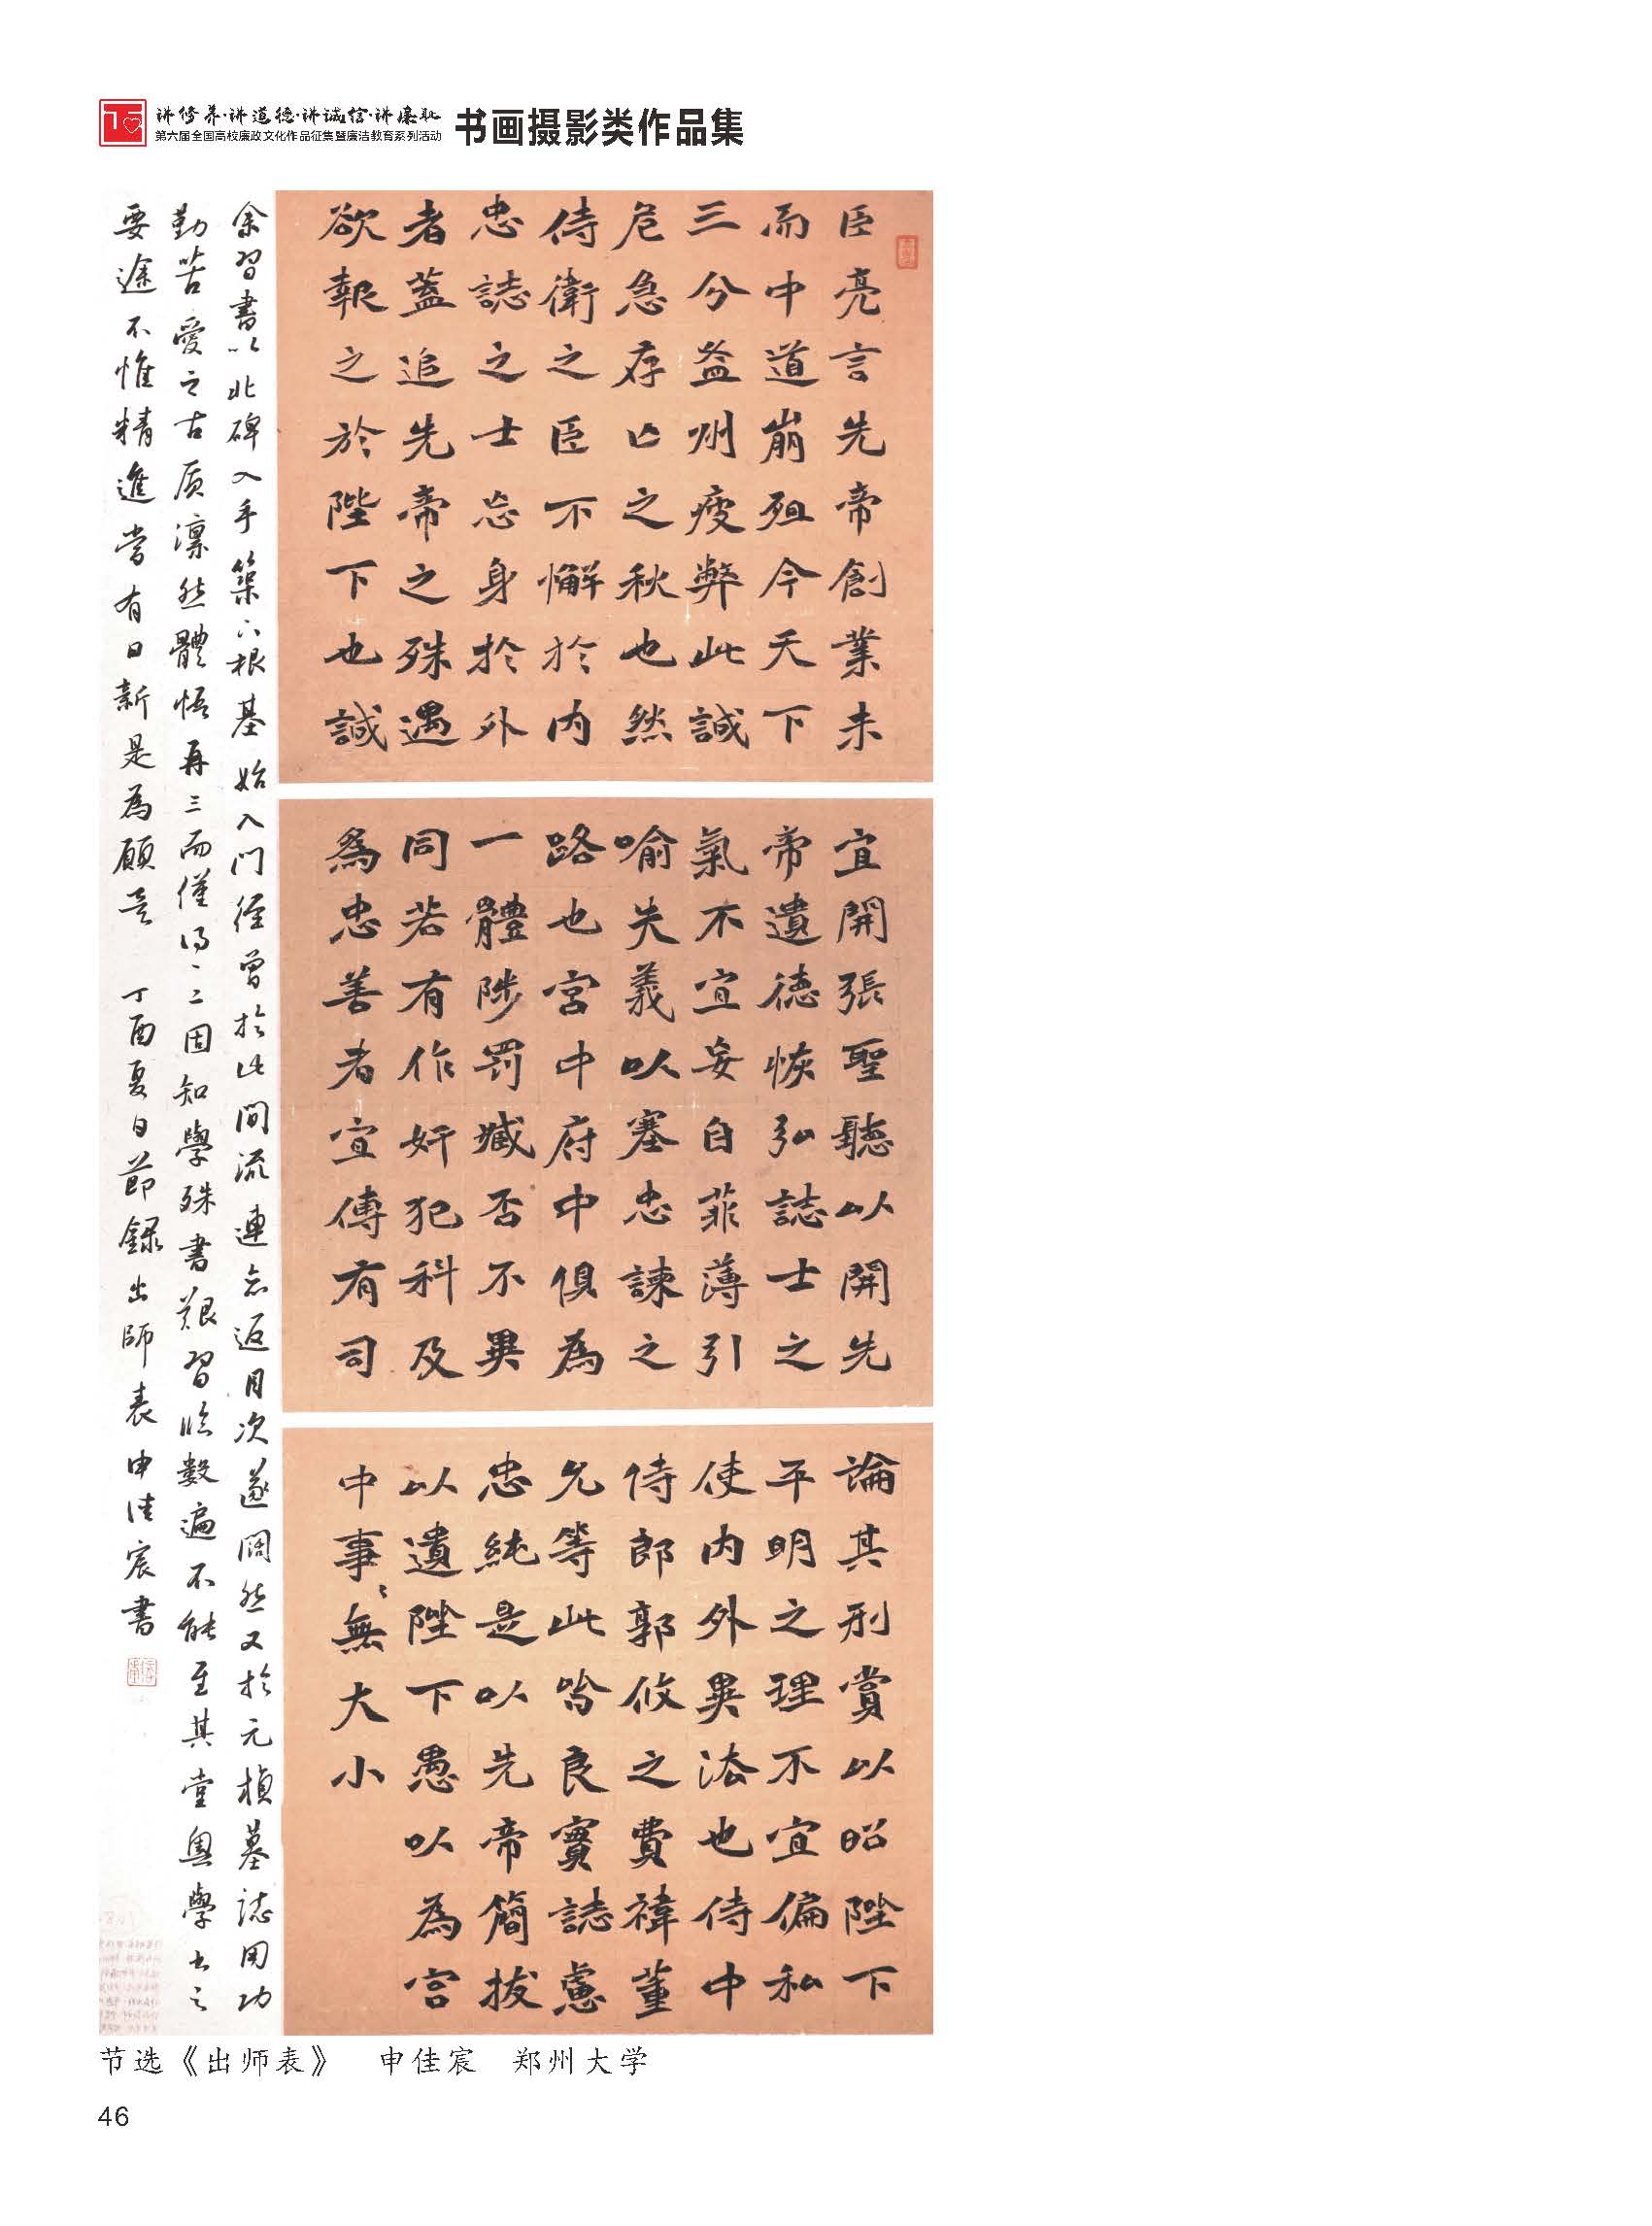 讲修养·讲道德·讲诚信·讲廉耻
第六届全国高校廉政文化作品征集暨廉洁教育系列活动
书画摄影类作品集
臣亮言先帝創業未
而中道崩殂今天下
三分益州疲弊此誠
危急存亡之秋也然
侍衛之臣不懈於内
忠誌之士忘身於外
者蓋追先帝之殊遇
欲報之於陛下也誠
宜開張聖聽以開先
帝遺德恢弘誌士之
氣不宜妄自菲薄引
喻失義以塞忠諫之
路也宮中府中俱為
一體陟罚臧否不異
同若有作奸犯科及
為忠善者宜傅有司
論其刑賞以昭陛下
平明之理不宜偏私
使内外異法也侍中
侍郎郭攸之費禕董
允等此皆良實誌慮
忠純是以先帝簡拔
以遺陛下愚以為宫
中事〻無大小
余習書以北碑入手築下根基始入門徑曾於此間流連忘返月次遂闊然又於元楨墓誌用功
勤苦愛之古质凛然體悟再三而僅得一二固知學殊書艱習臨數遍不能至其堂奥學書之
要途不惟精進嘗有日新是為願意 丁酉夏日節録出師表申佳宸書
节选《出师表》 申佳宸 郑州大学
46